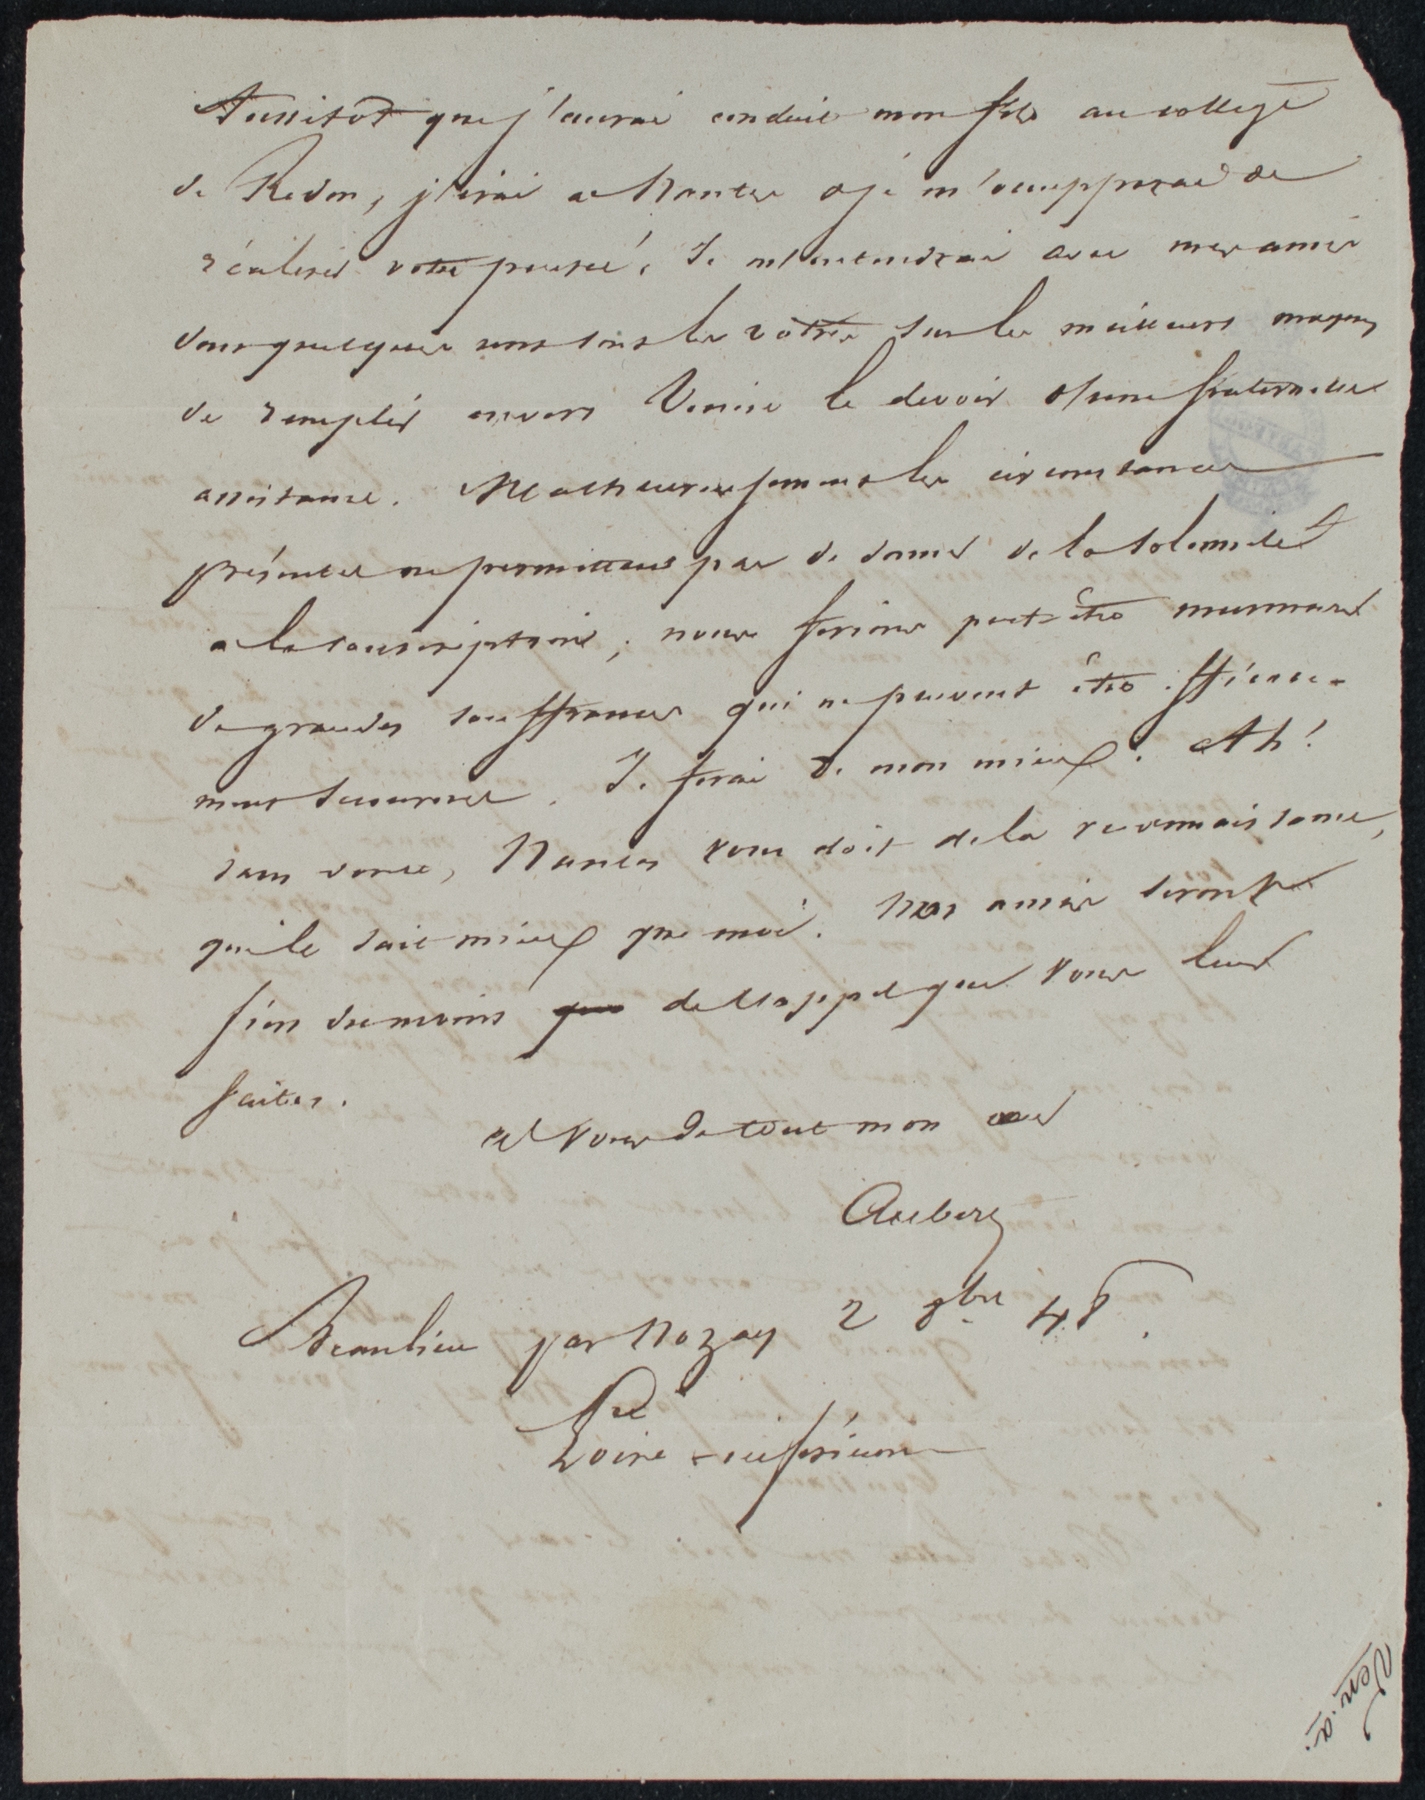 Aussitôt que j'aurai conduit mon fils au collège
de Redon, j'irai a Nantes & je m'occupperai de
réaliser votre pensée. Je m'entendrai avec mes amis
dont quelques uns sont les vôtres sur les meilleurs moyens
de remplir envers Venise le devoir d'une fraternelle
assistance. Malheureusement les circonstances
présentes ne permettent pas de donner de la solemnité
a la souscription ; nous ferions peut-être murmurer
de grandes souffrances qui ne peuvent être efficace-
ment secourues. Je ferai de mon mieux. Ah !
sans doute, Nantes vous doit de la reconnaissance,
qui le sait mieux que moi. Nos amis seront
fiers du moins de l'appel que vous leur
faites.
a vous de tout mon cœur
Beaulieu par Nozay 2 8bre 48.
Loire-inférieure
Venise.